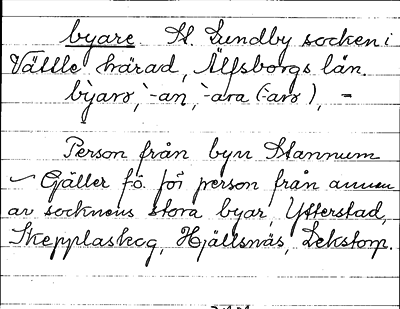 byare. St. Lundby socken i
Vättle härad, Älfsborgs län.
byarə, -an, -ara (-arə), =
Person från byn Stannum
~ Gäller fö. för person från annan
av socknens stora byar, Ytterstad,
Skepplaskog, Hjällsnäs, Lekstorp.